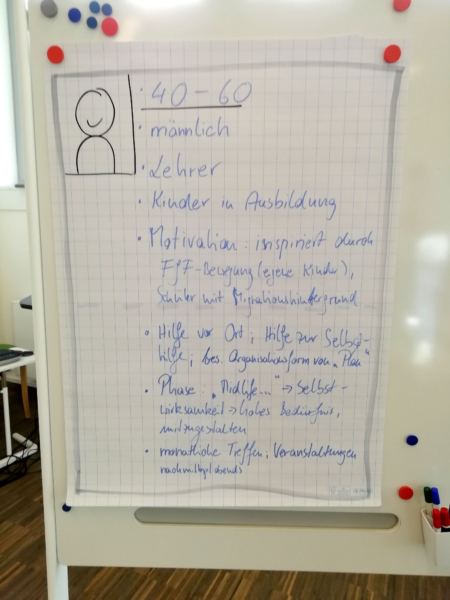 · 40 – 60
· männlich
· Lehrer
· Kinder in Ausbildung
· Motivation: inspiriert durch
FfF-Bewegung (eigene Kinder),
Schüler mit Migrationshintergrund
· Hilfe vor Ort; Hilfe zur Selbst-
hilfe; bes. Organisationsform von „Plan"
· Phase: „Midlife..." → Selbst-
wirksamkeit → hohes Bedürfnis,
mitzugestalten
· monatliche Treffen; Veranstaltungen
nachmittags/abends